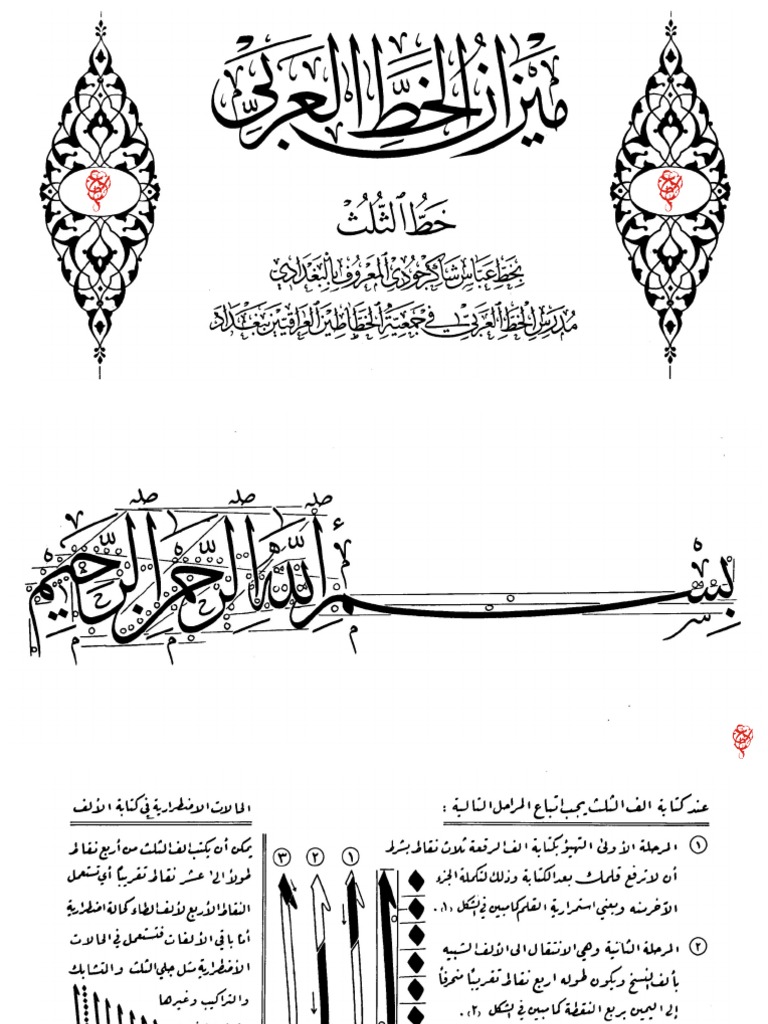 ميزان الخط العربي
خط الثلث
بخط عباس شاكر جودي المعروف بالبغدادي
مدرس الخط العربي في جمعية الخطاطين العراقيين ببغداد
بسم الله الرحمن الرحيم
عند كتابة الف الثلث يجب اتباع المراحل التالية :
١ المرحلة الأولى التهيؤ بكتابة الف الرقعة ثلاث نقاط بشرط
أن لا ترفع قلمك بعد الكتابة وذلك لتكملة الجزء
الآخر منه ويبقى استمرارية القلم كما مبين في الشكل (١).
٢ المرحلة الثانية وهي الانتقال الى الألف الشبيه
بألف النسخ ويكون طوله اربع نقاط تقريباً منحرفاً
إلى اليمين بربع النقطة كما مبين في الشكل (٢).
١ ٢ ٣
الحالات الاضطرارية في كتابة الألف
يمكن أن يكتب الف الثلث من أربع نقاط
طولاً الى عشر نقاط تقريباً أي تستعمل
النقاط الأربع لألف الطاء كحالة اضطرارية
أما باقي الألفات فتستعمل في الحالات
الاضطرارية مثل جلي الثلث والتشابك
والتراكيب وغيرها